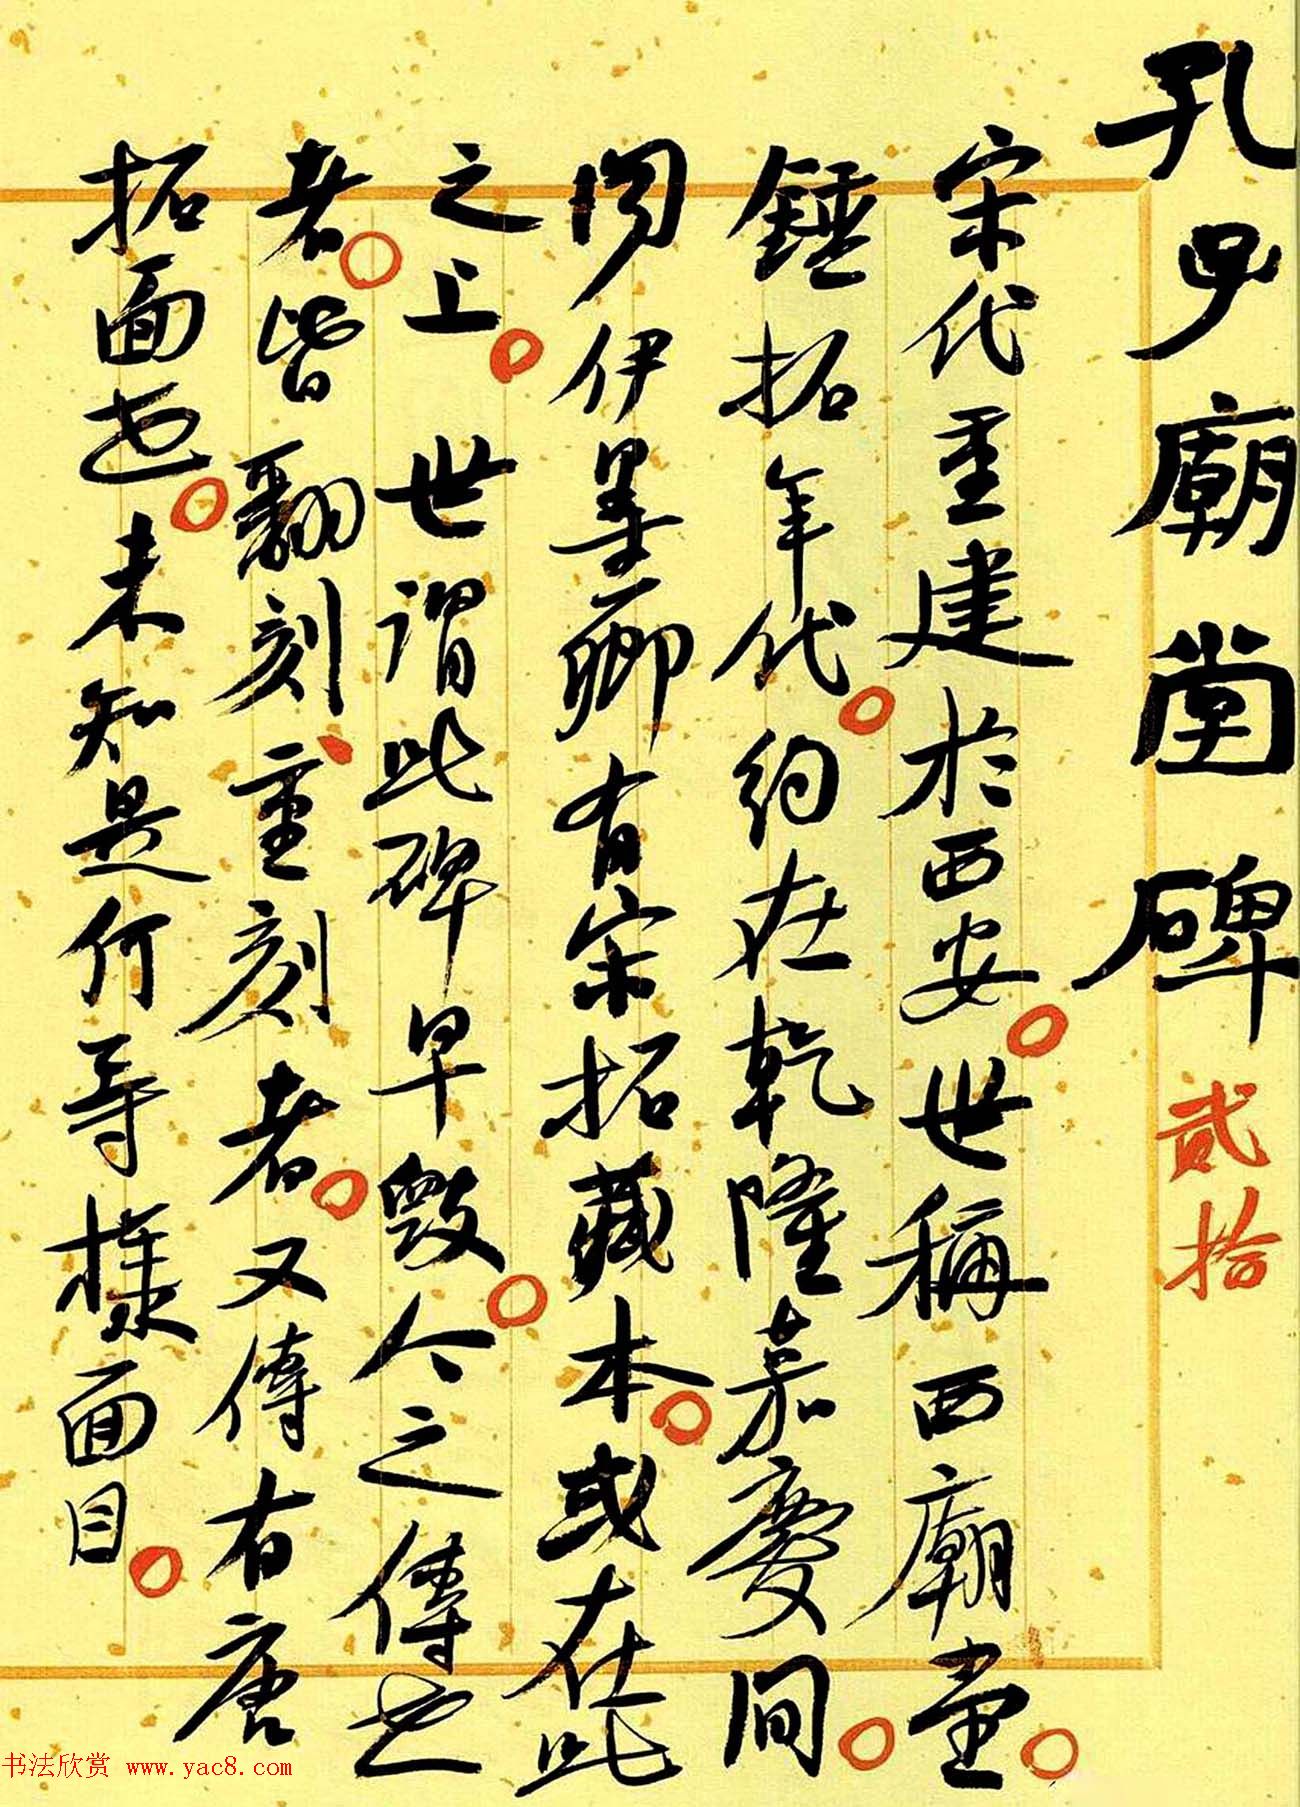 孔子廟堂碑 貳拾
宋代重建於西安。世稱西廟堂。
錘拓年代。約在乾隆嘉慶间。
闻伊墨卿有宋拓藏本。或在此
之上。世謂此碑早毁。今之傳世
者。皆翻刻、重刻者。又傳有唐
拓面世。未知是何等樣面目。
书法欣赏 www.yac8.com